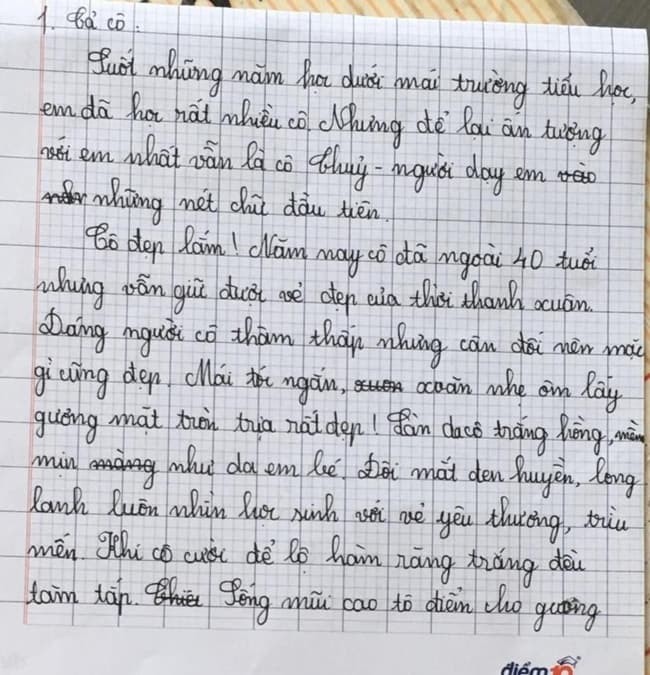 1. Tả cô.
Suốt những năm học dưới mái trường tiểu học,
em đã học rất nhiều cô. Nhưng để lại ấn tượng
với em nhất vẫn là cô Thuỷ - người dạy em vào
những nét chữ đầu tiên.
Cô đẹp lắm! Năm nay cô đã ngoài 40 tuổi
nhưng vẫn giữ được vẻ đẹp của thời thanh xuân.
Dáng người cô thâm thấp nhưng cân đối nên mặc
gì cũng đẹp. Mái tóc ngắn, xoăn nhẹ ôm lấy
gương mặt tròn trịa rất đẹp! Làn da cô trắng hồng, mềm
mịn màng như da em bé. Đôi mắt đen huyền, long
lanh luôn nhìn học sinh với vẻ yêu thương, trìu
mến. Khi cô cười để lộ hàm răng trắng đều
tăm tắp. Sống mũi cao tô điểm cho gương
điểm 10